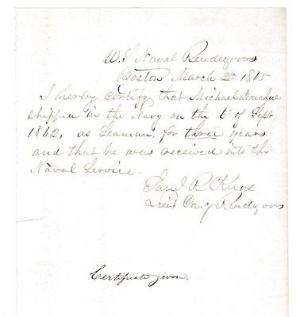 U.S. Naval Rendezvous
Boston March 2d 1865
I hereby certify that Michael Donahue
shipped in the Navy on the 6th of Sept
1862, as Seaman, for three years
and that he was received into the
Naval Service.
Saml R. Knox
Lieut Comg Rendezvous
Certificate given.